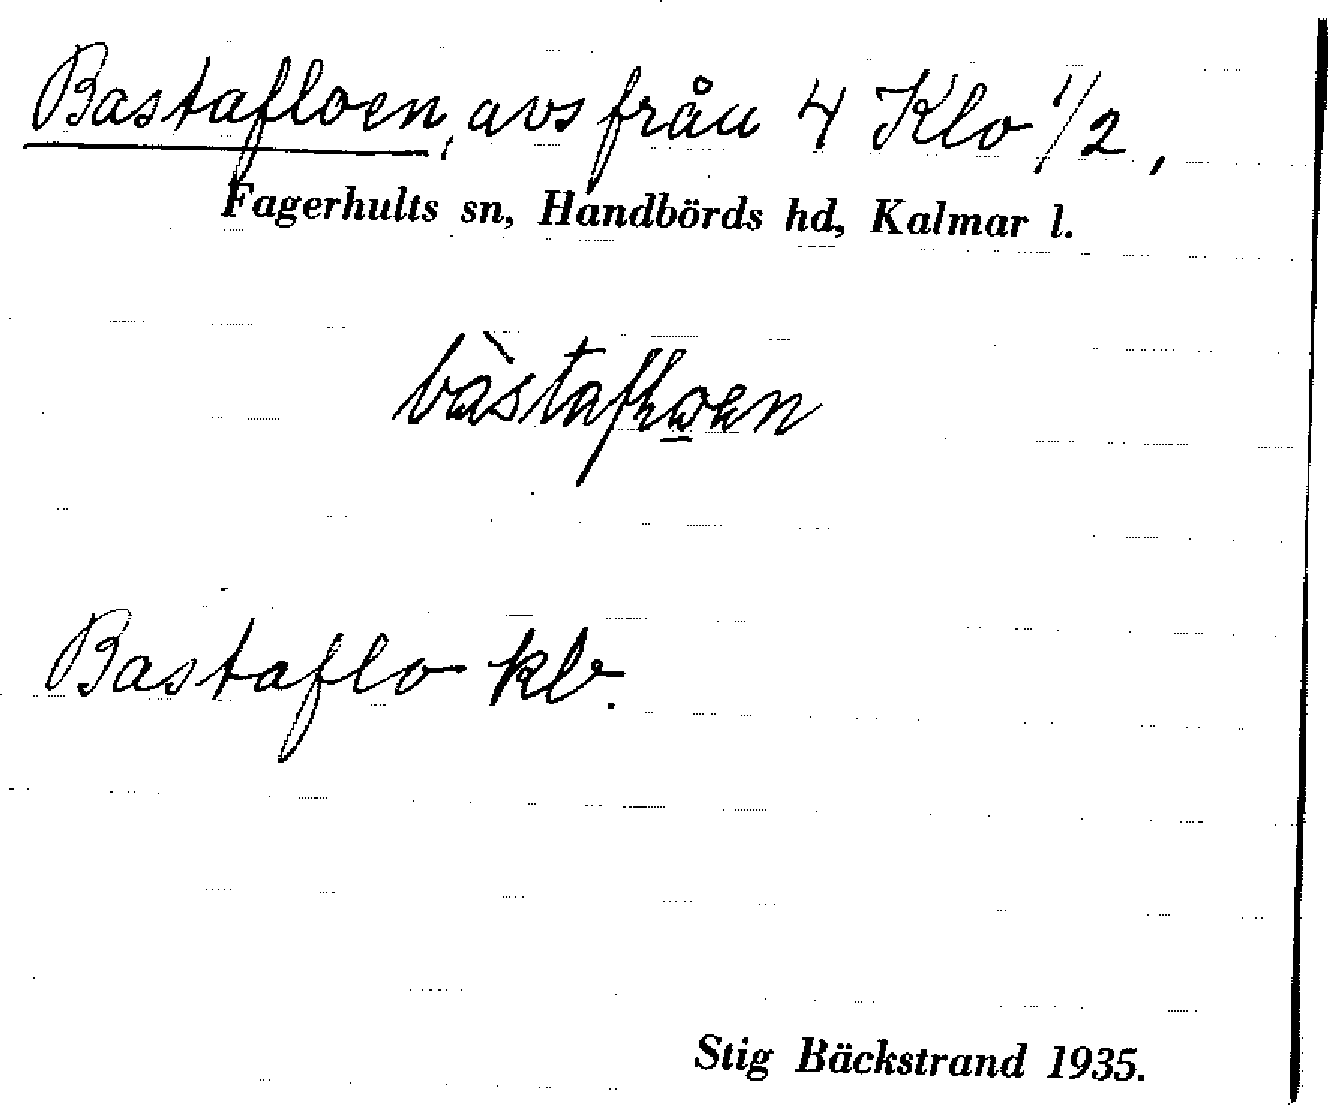 Bastafloen, avs från 4 Klo 1/2,
Fagerhults sn, Handbörds hd, Kalmar l.
Bastaflo klr.
Stig Bäckstrand 1935.